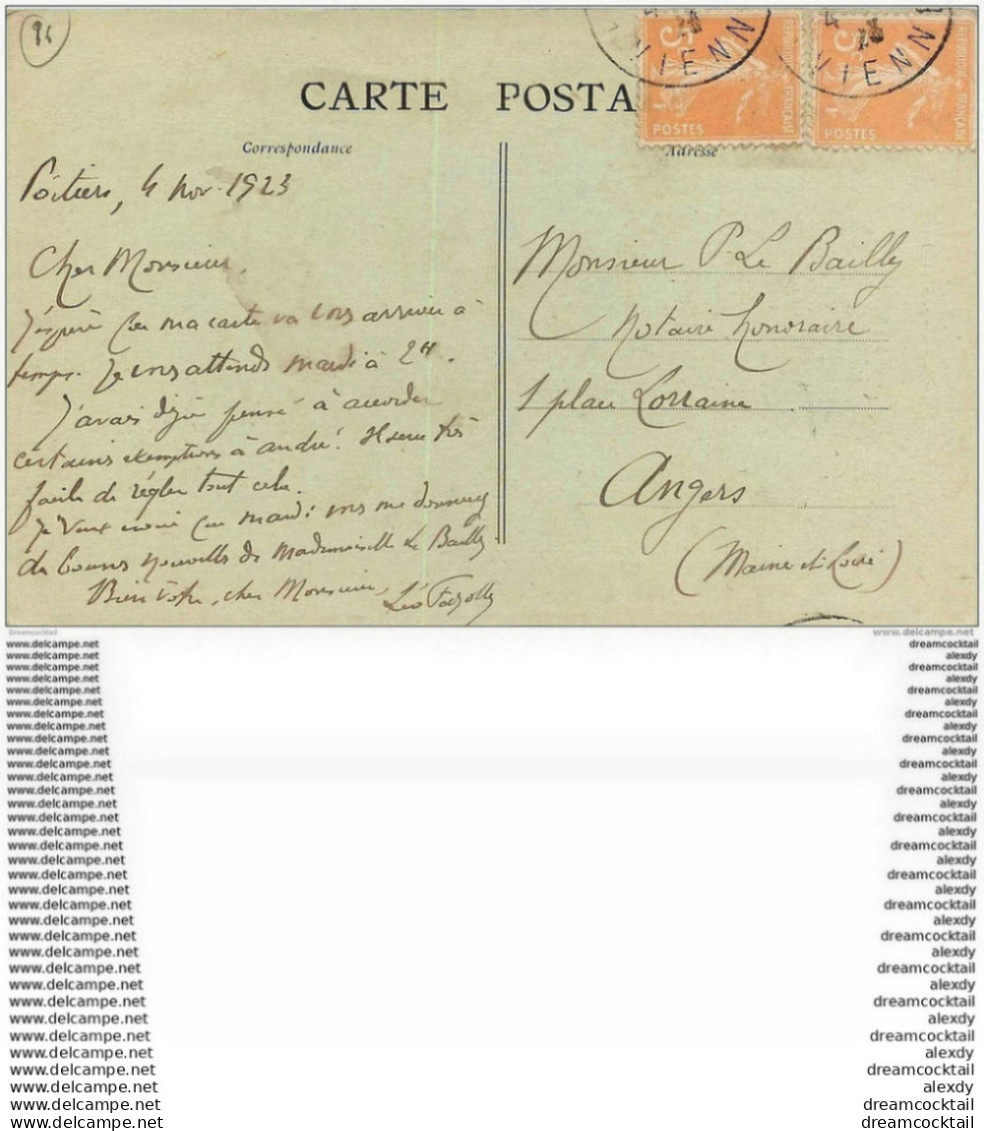 86
CARTE POSTA
Correspondance
Adresse
5
POSTES
REPUBLIQUE FRANÇAISE
VIENN
5
POSTES
REPUBLIQUE FRANÇAISE
VIENN
Poitiers, 4 nov. 1923
Cher Monsieur,
J'espère que ma carte va vous arriver à
temps. Je vous attends mardi à 2H.
J'avais déjà pensé à accorder
certains exemptions à André. Il sera très
facile de régler tout cela.
Je veux croire que mardi vous me donnerez
de bonnes nouvelles de Mademoiselle Le Bailly
Bien vôtre, cher Monsieur,
Léo
Monsieur P. Le Bailly
Notaire honoraire
1 place Lorraine
Angers
(Maine et Loire)
Dreamcocktail
www.delcampe.net
www.delcampe.net dreamcocktail
www.delcampe.net alexdy
www.delcampe.net dreamcocktail
www.delcampe.net alexdy
www.delcampe.net dreamcocktail
www.delcampe.net alexdy
www.delcampe.net dreamcocktail
www.delcampe.net alexdy
www.delcampe.net dreamcocktail
www.delcampe.net alexdy
www.delcampe.net dreamcocktail
www.delcampe.net alexdy
www.delcampe.net dreamcocktail
www.delcampe.net alexdy
www.delcampe.net dreamcocktail
www.delcampe.net alexdy
www.delcampe.net dreamcocktail
www.delcampe.net alexdy
www.delcampe.net dreamcocktail
www.delcampe.net alexdy
www.delcampe.net dreamcocktail
www.delcampe.net alexdy
www.delcampe.net dreamcocktail
www.delcampe.net alexdy
www.delcampe.net dreamcocktail
www.delcampe.net alexdy
www.delcampe.net dreamcocktail
www.delcampe.net alexdy
www.delcampe.net dreamcocktail
www.delcampe.net alexdy
www.delcampe.net dreamcocktail
www.delcampe.net alexdy
www.delcampe.net dreamcocktail
www.delcampe.net alexdy
www.delcampe.net dreamcocktail
www.delcampe.net alexdy
www.delcampe.net dreamcocktail
www.delcampe.net dreamcocktail